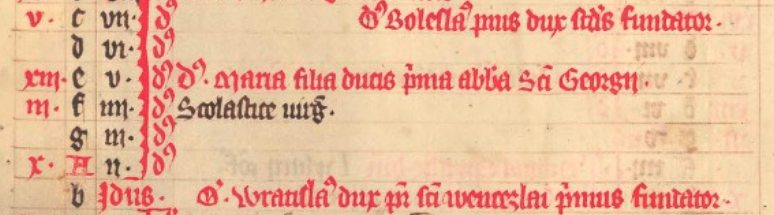 v. c vii. d⁹ O⁹ Bolesla⁹ pm̄us dux sc̄tis fundator.
d vi. d⁹
xiii. e v. d⁹ d⁹. Maria filia ducis p̄ma abb̄a Sc̄i Georgii.
iii. f iiii. d⁹ Scolastice uirg̅.
g iii. d⁹
x. A ii. d⁹
b Jdus. O⁹. Wratisla⁹ dux sc̄i wenczlai p̄mus fundator.